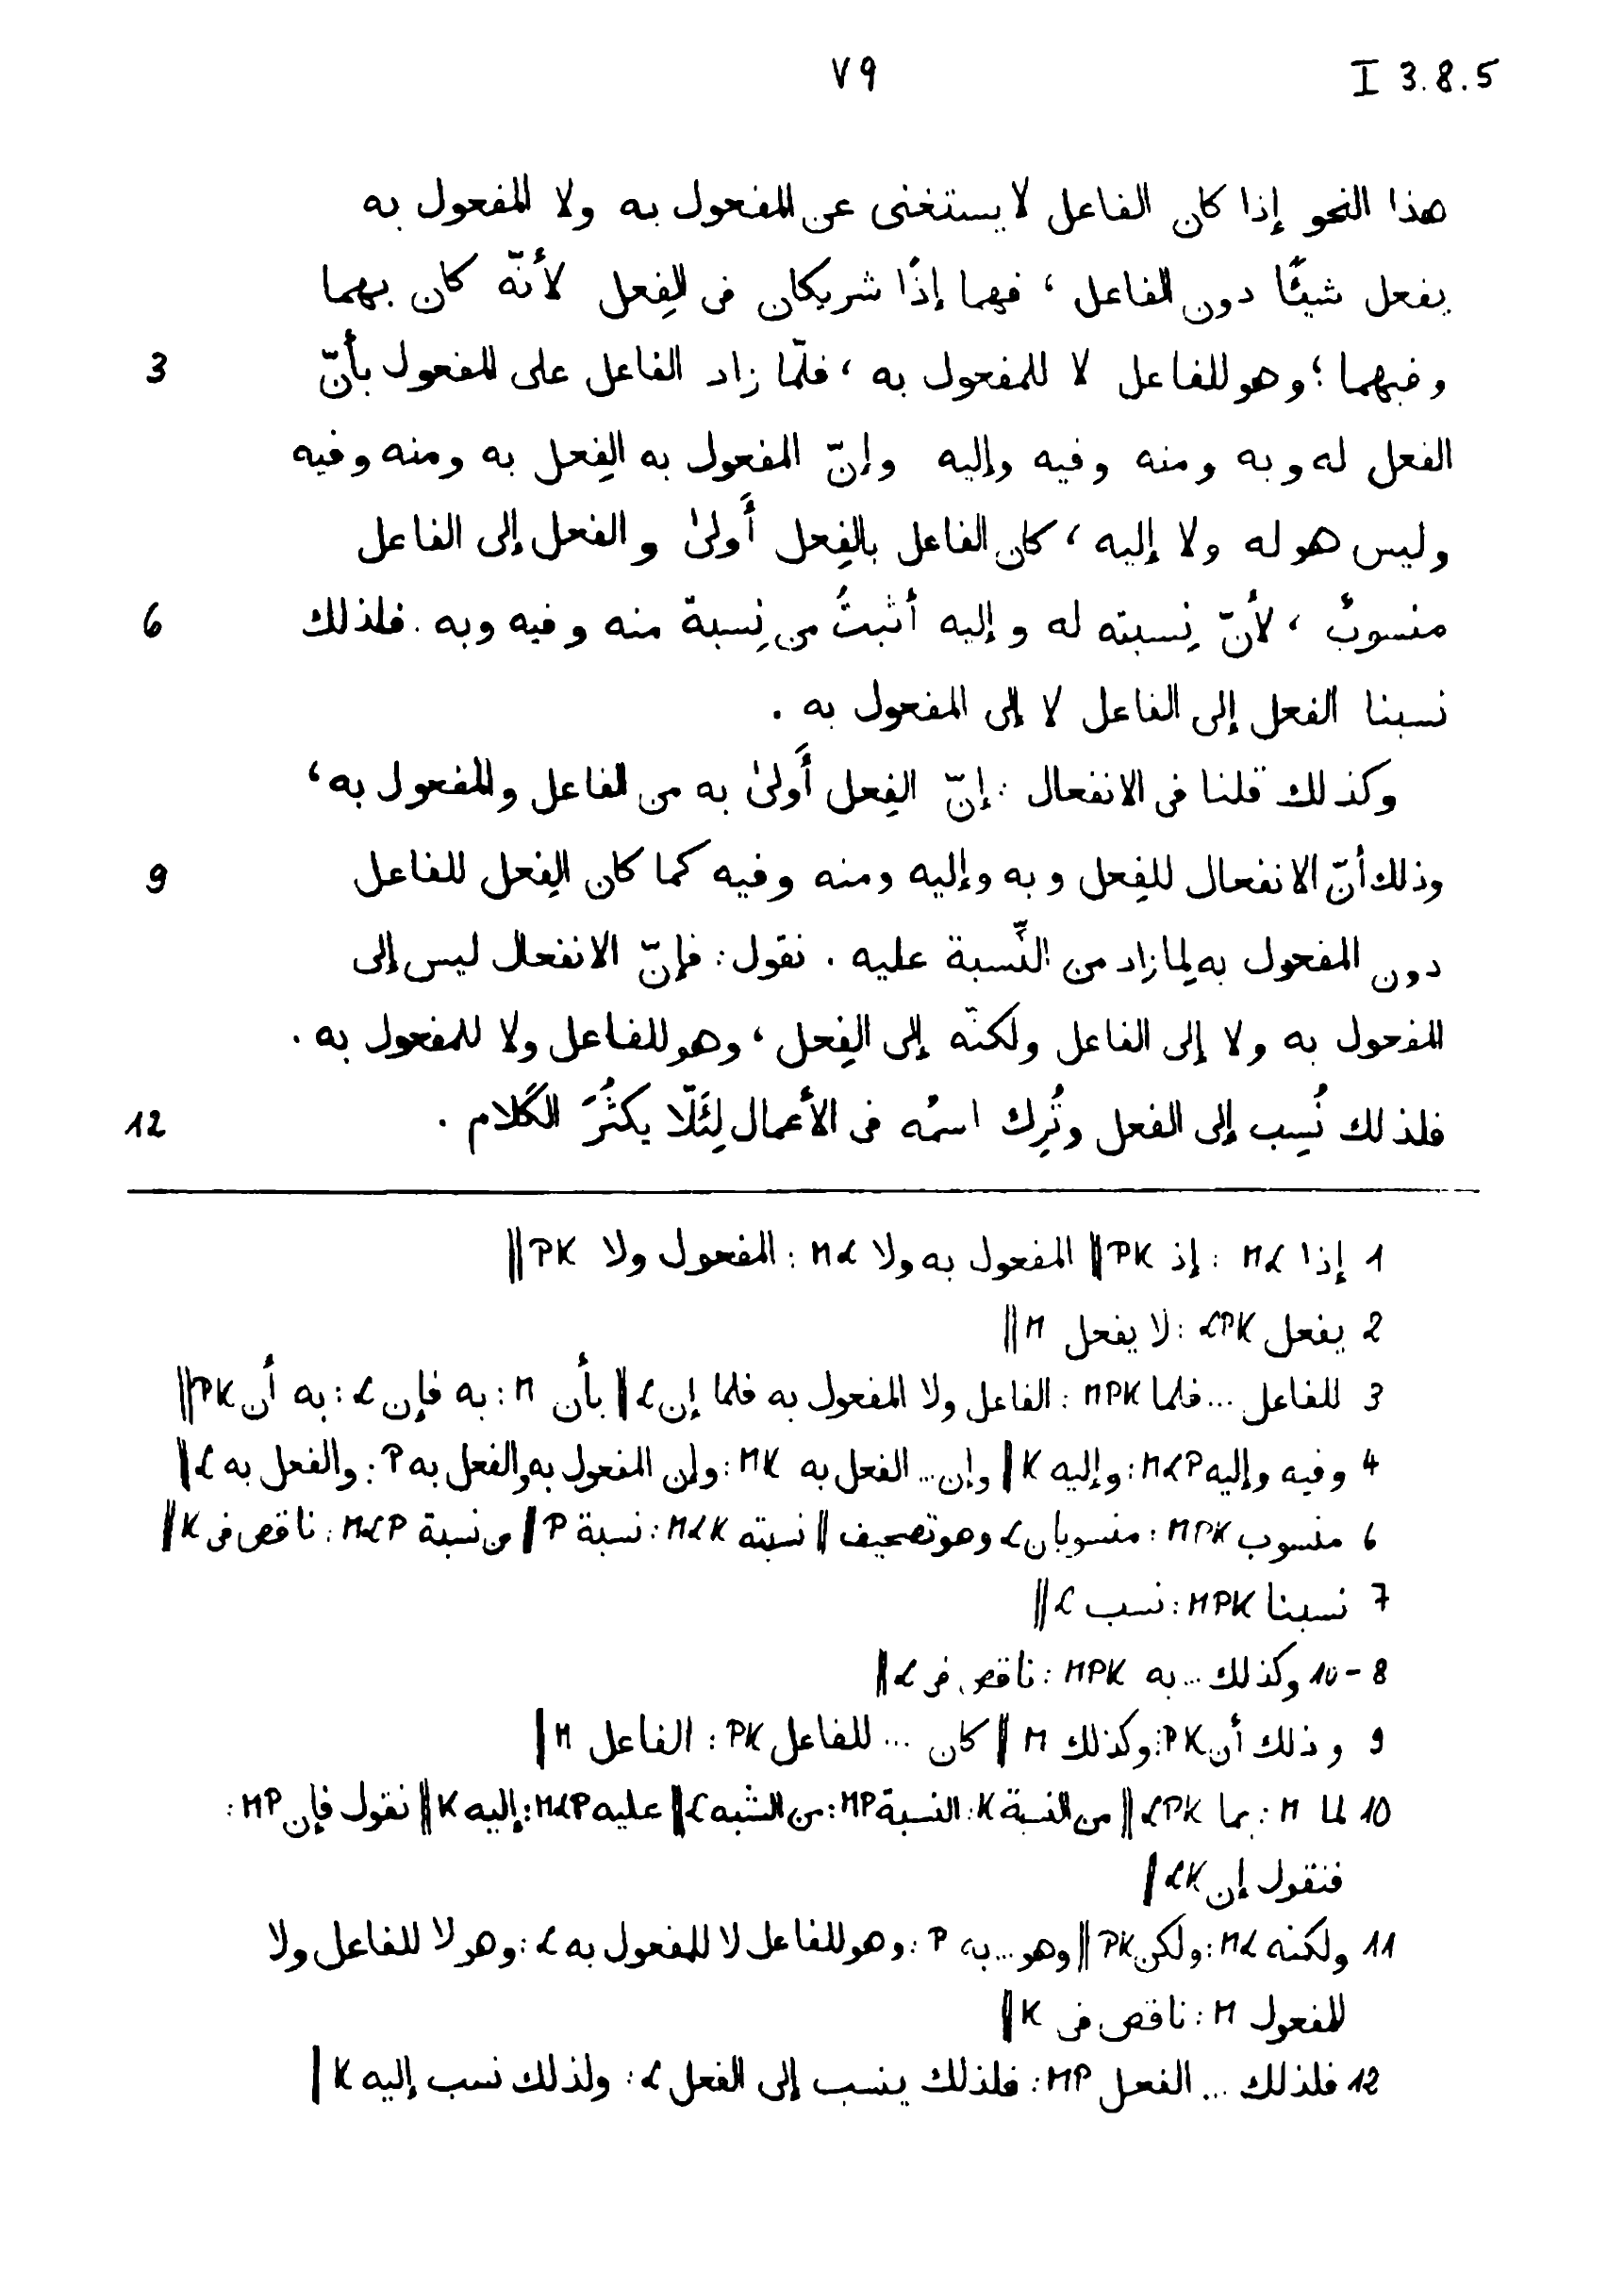 I 3.8.5 ٧٩
هذا النحو إذا كان الفاعل لا يستغنى عن المفعول به ولا المفعول به
يفعل شيئًا دون الفاعل ، فهما إذًا شريكان فى الفِعل لأنّه كان بهما
وفيهما ؛ وهو للفاعل لا للمفعول به ، فلمّا زاد الفاعل على المفعول بأنّ 3
الفعل له وبه ومنه وفيه وإليه وإنّ المفعول به الفِعل به ومنه وفيه
وليس هو له ولا إليه ، كان الفاعل بالفِعل أَولىٰ والفعل إلى الفاعل
منسوبٌ ، لأنّ نِسبته له وإليه أثبتُ من نِسبة منه وفيه وبه . فلذلك 6
نسبنا الفعل إلى الفاعل لا إلى المفعول به .
وكذلك قلنا فى الانفعال : إنّ الفِعل أَولىٰ به من الفاعل والمفعول به ،
وذلك أنّ الانفعال للفِعل وبه وإليه ومنه وفيه كما كان الفِعل للفاعل 9
دون المفعول به لِما زاد من النِّسبة عليه . نقول : فإنّ الانفعال ليس إلى
المفعول به ولا إلى الفاعل ولكنّه إلى الفِعل ، وهو للفاعل ولا للمفعول به .
فلذلك نُسِب إلى الفعل وتُرِك اسمُه فى الأعمال لِئَلّا يكثُرَ الكَلام . 12
1 إذا ML : إذ PK || المفعول به ولا ML : المفعول ولا PK ||
2 يفعل LPK : لا يفعل M ||
3 للفاعل ... فلما MPK : الفاعل ولا المفعول به فلما إن L || بأن M : به فإن L : به أن PK ||
4 وفيه وإليه MLP : وإليه K || وإن ... الفعل به MK : وإن المفعول به والفعل به P : والفعل به L ||
6 منسوب MPK : منسوبان L وهو تصحيف || نسبته MLK : نسبة P || من نسبة MLP : ناقص فى K ||
7 نسبنا MPK : نسب L ||
8-10 وكذلك ... به MPK : ناقص فى L ||
9 وذلك أن PK : وكذلك M || كان ... للفاعل PK : الفاعل M ||
10 لما M : بما LPK || من النسبة K : النسبة MP : من الشبه L || عليه MLP : إليه K || نقول فإن MP :
فنقول إن LK ||
11 ولكنه ML : ولكن PK || وهو ... به P : وهو للفاعل لا للمفعول به L : وهو لا للفاعل ولا
للمفعول M : ناقص فى K ||
12 فلذلك ... الفعل MP : فلذلك ينسب إلى الفعل L : ولذلك نسب إليه K ||